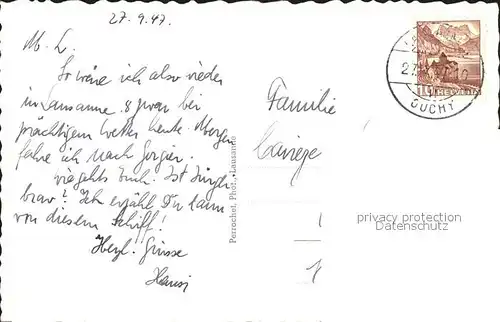 27.9.47.
M. L.
So wäre ich also wieder
in Lausanne & zwar bei
prächtigem Wetter heute. Morgen
fahre ich nach Gorgier.
wie gehts Euch. Ist Jürgen
brav? Ich erzähl Dir dann
von diesem Schiff!
Herzl. Grüsse
Hansi
Familie
Perrochet, Phot., Lausanne
privacy protection
Datenschutz
10 HELVETIA
OUCHY